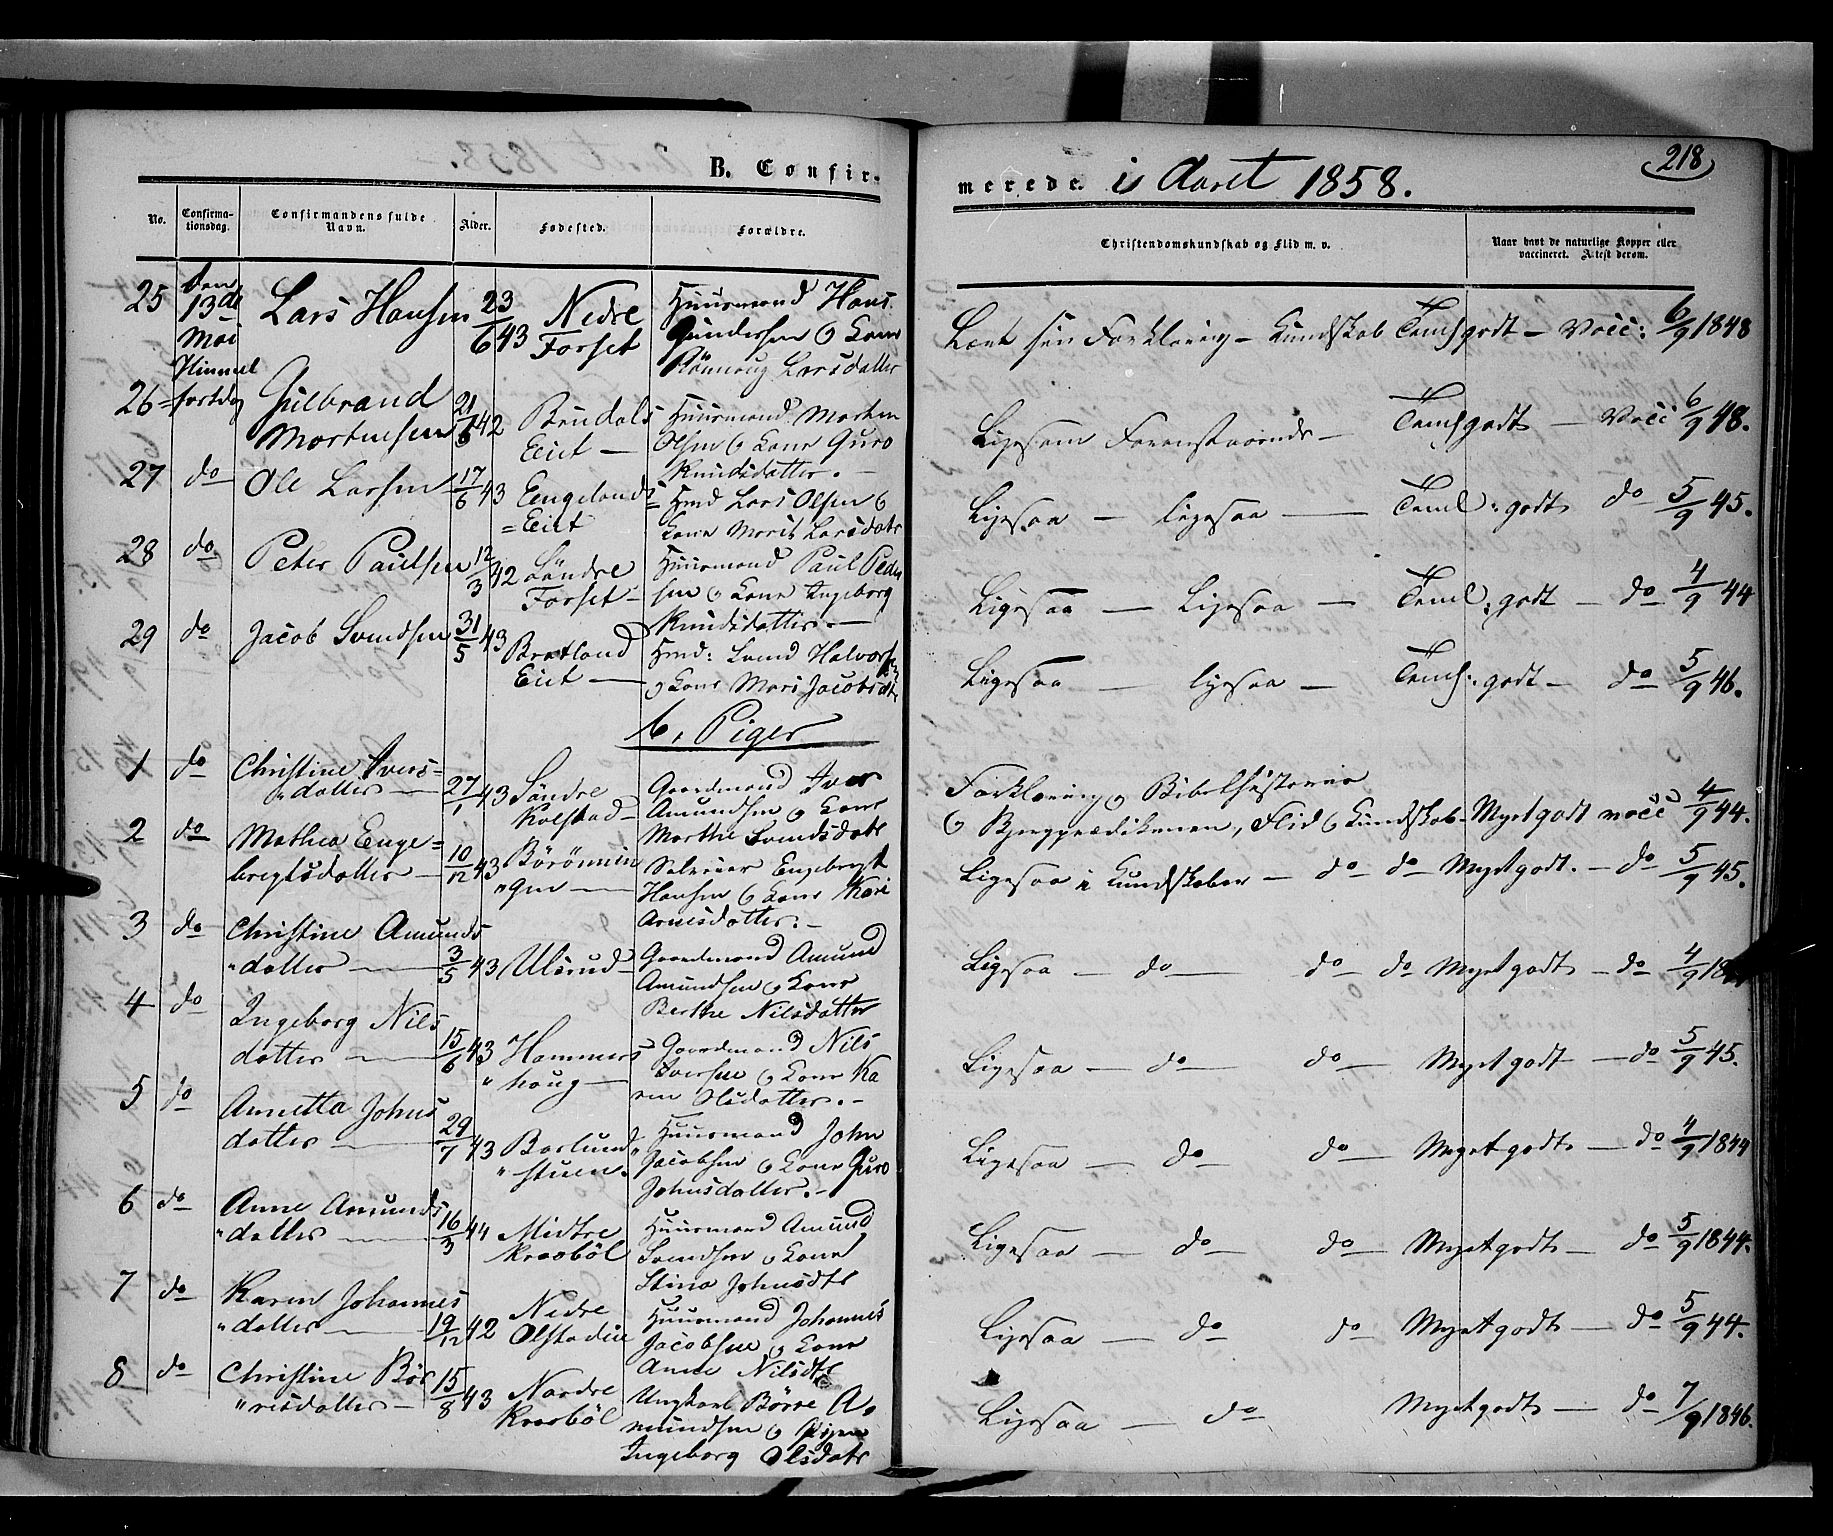 B. Confir-
merede. i Aaret 1858.
218
No.
Confirma-
tionsdag.
Confirmandens fulde
Navn.
Alder.
Fødested.
Forældre.
Christendomskundskab og Flid m. v.
Naar havt de naturlige Kopper eller
vaccineret. Attest derom.
25 den 13de Mai Lars Hansen 23/6 43 Nedre Forset Huusmand Hans Gundersen og Kone Rønnoug Larsdatter
Lært sin Forklaring - Kundskab Teml godt - Vacc: 6/9 1848
26 Himmelfartsdag Gulbrand Mortensen 21/6 42 Brudals Eiet - Huusmand Morten Olsen og Kone Guro Knudsdatter. -
Ligesom Foranstaaende - Teml godt - Vacc 6/9 48.
27 do Ole Larsen 17/6 43 Engelands = Eiet Hmd Lars Olsen og Kone Marit Larsdatr
Ligesaa - ligesaa - Teml: godt do 5/9 45.
28 do Peter Paulsen 12/3 42 Søndre Forset - Huusmand Paul Pedersen og Kone Ingeborg Knudsdatter. -
Ligesaa - Ligesaa - Teml: godt - do 4/9 44
29 do Jacob Svendsen 31/5 43 Bratland Eiet - Hmd: Svend Halvorsen og Kone Mari Jacobsdtr
Ligesaa - ligesaa - Teml: godt - do 5/9 46.
b, Piger
1 do Christine Ivers= datter - 27/1 43 Søndre Kolstad - Gaardmand Iver Amundsen og Kone Marthe Svendsdatr
Forklaring og Bibelhistorie
og Bjergprædikenen, Flid og Kundskab - Meget godt vacc 4/9 44.
2 do Mathea Enge= bregtsdatter - 10/12 43 Huusmand Engebregt Hansen og Kone Kari Arnesdatter. -
Ligesaa i Kundskaber - do - do - Meget godt. - do 5/9 45.
3 do Christine Amunds datter - 3/5 43 Ulsrud - Gaardmand Amund Amundsen og Kone Berthe Nilsdatter
Ligesaa - do - do - do Meget godt - do 4/9
4 do Ingeborg Nils datter - 15/6 43 Hammers houg - Gaardmand Nils Iversen og Kone Karen Olsdatter. -
Ligesaa - do - do - Meget godt - do 5/9 45.
5 do Annetta Johns datter - 29/7 43 Baslund stuen. Huusmand John Jacobsen og Kone Guro Johnsdatter. -
Ligesaa - do - do - Meget godt - do 4/9 1844
6 do Anne Amunds datter - 16/3 44 Midtre Kraabøl Huusmand Amund Svendsen og Kone Stina Johnsdtr
Ligesaa - do - do - Meget godt - do 5/9 1844.
7 do Karen Johannes datter - 19/12 42 Nedre Olstadeie Huusmand Johannes Jacobsen og Kone Anne Nilsdtr
Ligesaa - do - do - Meget godt - do 5/9 44.
8 do Christine Børresdatter - 15/8 43 Nordre Kraabøl Ungkarl Børre Amundsen og Pigen Ingeborg Olsdatr
Ligesaa - do Meget godt - do 7/9 1846.